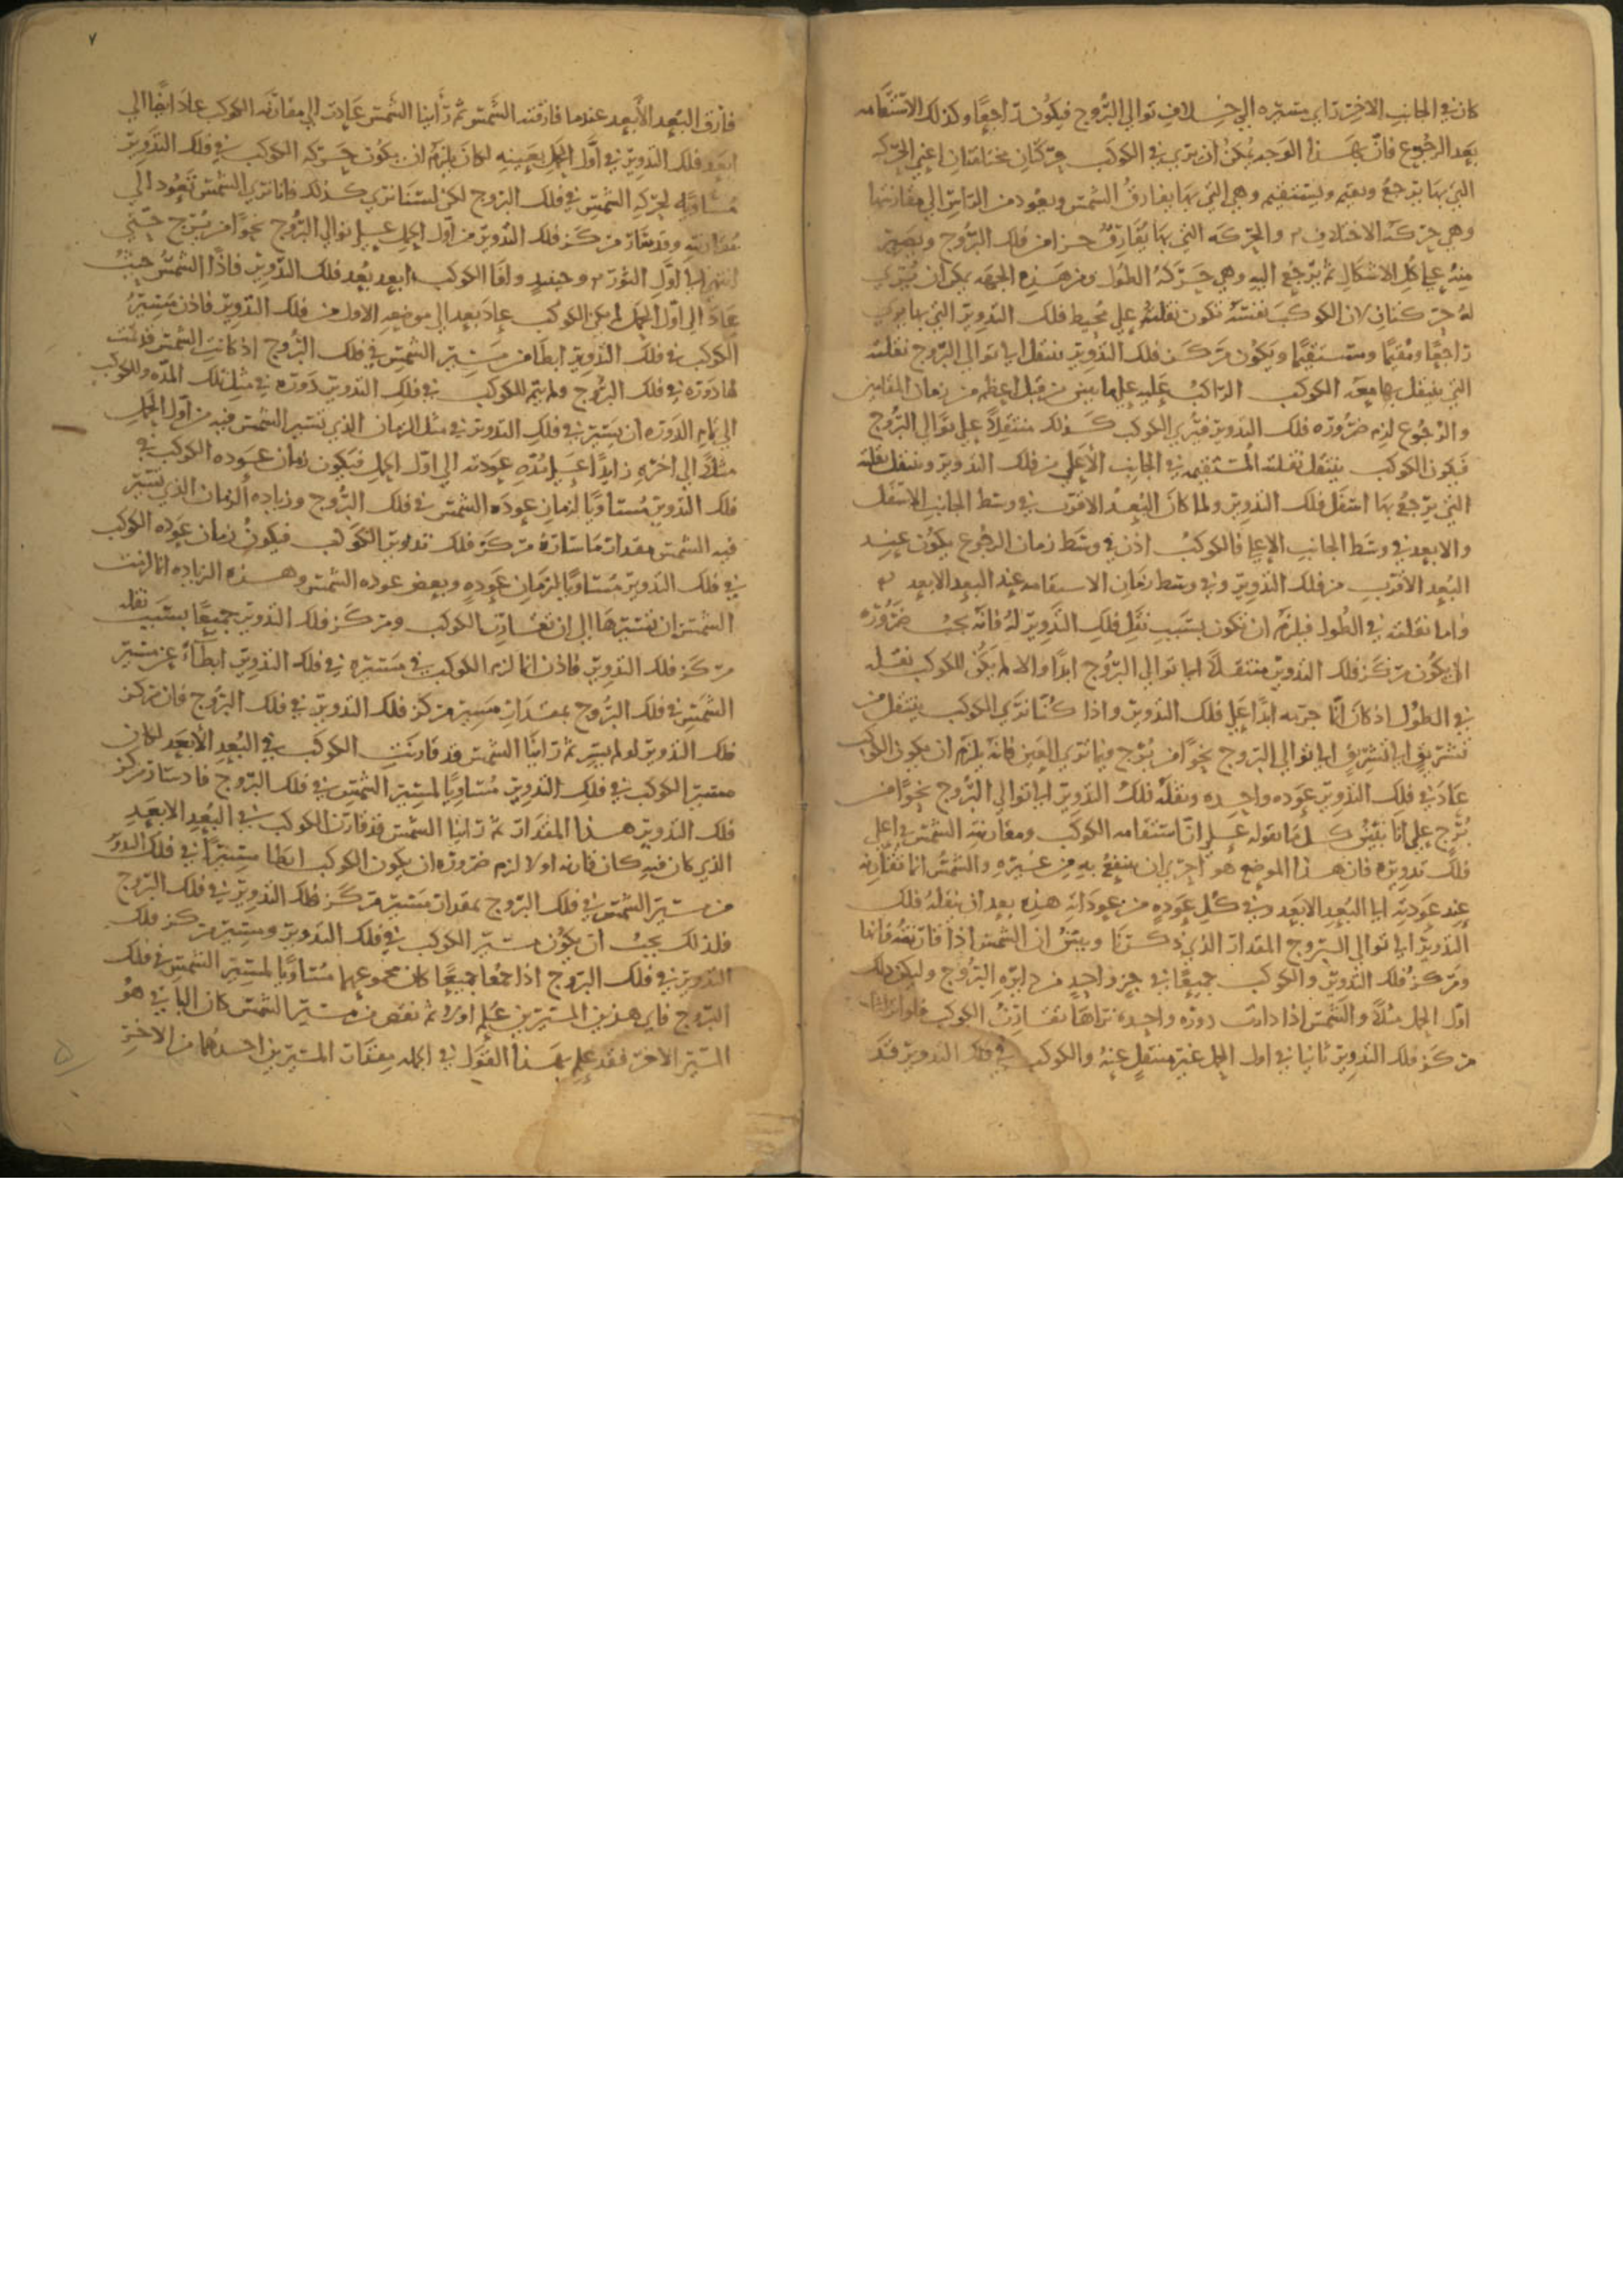 كان في الجانب الاخر راي مسيره الي خلاف توالي البروج فيكون راجعا وكذلك الاستقامه
بعد الرجوع فان بهذا الوجه يمكن ان يري في الكوكب حركتان مختلفتان اعني الحركه
التي بها يرجع ويقيم ويستقيم وهي التي بها يفارق الشمس ويعود من الراس الي مقارنتها
وهي حركة الاختلاف والحركه التي بها يفارق جزا من فلك البروج ويصير
منه علي كل الاشكال ثم يرجع اليه وهي حركة الطول ومن هذه الجهه يمكن ان يري
له حركتان لان الكوكب نفسه تكون نقلته علي محيط فلك التدوير التي بها يري
راجعا ومقيما ومستقيما ويكون مركز فلك التدوير ينتقل الي توالي البروج نقلته
التي ينتقل بها معه الكوكب الراكب عليه علي ما بين من قبل اعظم من زمان المقامين
والرجوع لزم ضرورة فلك التدوير فيري الكوكب كذلك منتقلا علي توالي البروج
فيكون الكوكب ينتقل نقلته المستقيمه في الجانب الاعلي من فلك التدوير وينتقل نقلته
التي يرجع بها اسفل فلك التدوير ولما كان البعد الاقرب في وسط الجانب الاسفل
والابعد في وسط الجانب الاعلي فالكوكب اذن في وسط زمان الرجوع يكون عند
البعد الاقرب من فلك التدوير وفي وسط زمان الاستقامه عند البعد الابعد
واما نقلته في الطول فيلزم ان تكون بسبب نقل فلك التدوير له فانه يجب ضرورة
ان يكون مركز فلك التدوير منتقلا الي توالي البروج ابدا والا لم يكن للكوكب نقله
في الطول اذ كان انما جريه ابدا علي فلك التدوير واذا كنا نري الكوكب ينتقل من
تشريق الي تشريق الي توالي البروج نحوا من برج فيما تري العين فانه يلزم ان يكون الكوكب
عاد في فلك التدوير عوده واحده ونقله فلك التدوير الي توالي البروج نحوا من
برج علي انا نبين كل ما نقوله علي ان استقامه الكوكب ومقارنة الشمس في اعلي
فلك تدويره فان هذا الموضع هو احري ان ينتفع به من غيره والشمس انما تقارنه
عند عودته الي البعد الابعد وفي كل عوده من عوداته هذه بعد ان ينقله فلك
التدوير الي توالي البروج المقدار الذي ذكرنا وبين ان الشمس اذا قارنته فانها
ومركز فلك التدوير والكوكب جميعا في جزو واحد من دايره البروج وليكن ذلك
اول الحمل مثلا والشمس اذا دارت دوره واحده نراها تقارن الكوكب فلو
مركز فلك التدوير ثانيا في اول الحمل غير منتقل عنه والكوكب في فلك التدوير قد
فارق البعد الابعد عندما فارقته الشمس ثم راينا الشمس عادت الي مقارنة الكوكب عاد ايضا الي
ابعد فلك التدوير في اول الحمل بعينه لكان يلزم ان يكون حركه الكوكب في فلك التدوير
مساويه لحركه الشمس في فلك البروج لكن لسنا نري كذلك فانا نري الشمس تعود الي
مقارنته وقد سار مركز فلك التدوير من اول الحمل علي توالي البروج نحوا من برج حتي
انتهي الي اول الثور وحينيذ وافا الكوكب ابعد بعد فلك التدوير فاذا الشمس حيث
عاد الي اول الحمل لم يكن الكوكب عاد بعد الي موضعه الاول من فلك التدوير فاذن مسير
الكوكب في فلك التدوير ابطا من مسير الشمس في فلك البروج اذ كانت الشمس قد تمت
لها دوره في فلك البروج ولم يتم للكوكب في فلك التدوير دوره في مثل تلك المده وللكوكب
الي تمام الدوره ان يسير في فلك التدوير في مثل الزمان الذي تسير الشمس فيه من اول الحمل
مثلا الي اخره زايدا علي مدة عودته الي اول الحمل فيكون زمان عوده الكوكب في
فلك التدوير مساويا لزمان عودة الشمس في فلك البروج وزياده الزمان الذي تسير
فيه الشمس مقدار ما ساره مركز فلك تدوير الكوكب فيكون زمان عوده الكوكب
في فلك التدوير مساويا لزمان عوده وبعض عوده الشمس وهذه الزياده انما لزمت
الشمس ان تسيرها الي ان تقارن الكوكب ومركز فلك التدوير جميعا بسبب نقله
مركز فلك التدوير فاذن انما لزم الكوكب في مسيره في فلك التدوير ابطاء عن مسير
الشمس في فلك البروج بمقدار مسير مركز فلك التدوير في فلك البروج فان مركز
فلك التدوير لو لم يسر ثم راينا الشمس قد قارنت الكوكب في البعد الابعد لكان
مسير الكوكب في فلك التدوير مساويا لمسير الشمس في فلك البروج فاذ سار مركز
فلك التدوير هذا المقدار ثم راينا الشمس قد قارن الكوكب في البعد الابعد
الذي كان فيه كان قارنه اولا لزم ضرورة ان يكون الكوكب ابطا مسيرا في فلك التدوير
من مسير الشمس في فلك البروج بمقدار مسير مركز فلك التدوير في فلك البروج
فلذلك يجب ان يكون مسير الكوكب في فلك التدوير ومسير مركز فلك
التدوير في فلك البروج اذا جمعا جميعا كان مجموعهما مساويا لمسير الشمس في فلك
البروج فاي هذين المسيرين علم اولا ثم نقص من مسير الشمس كان الباقي هو
المسير الاخر فقد علم بهذا القول في الجمله مقدار المسيرين احدهما من الاخر